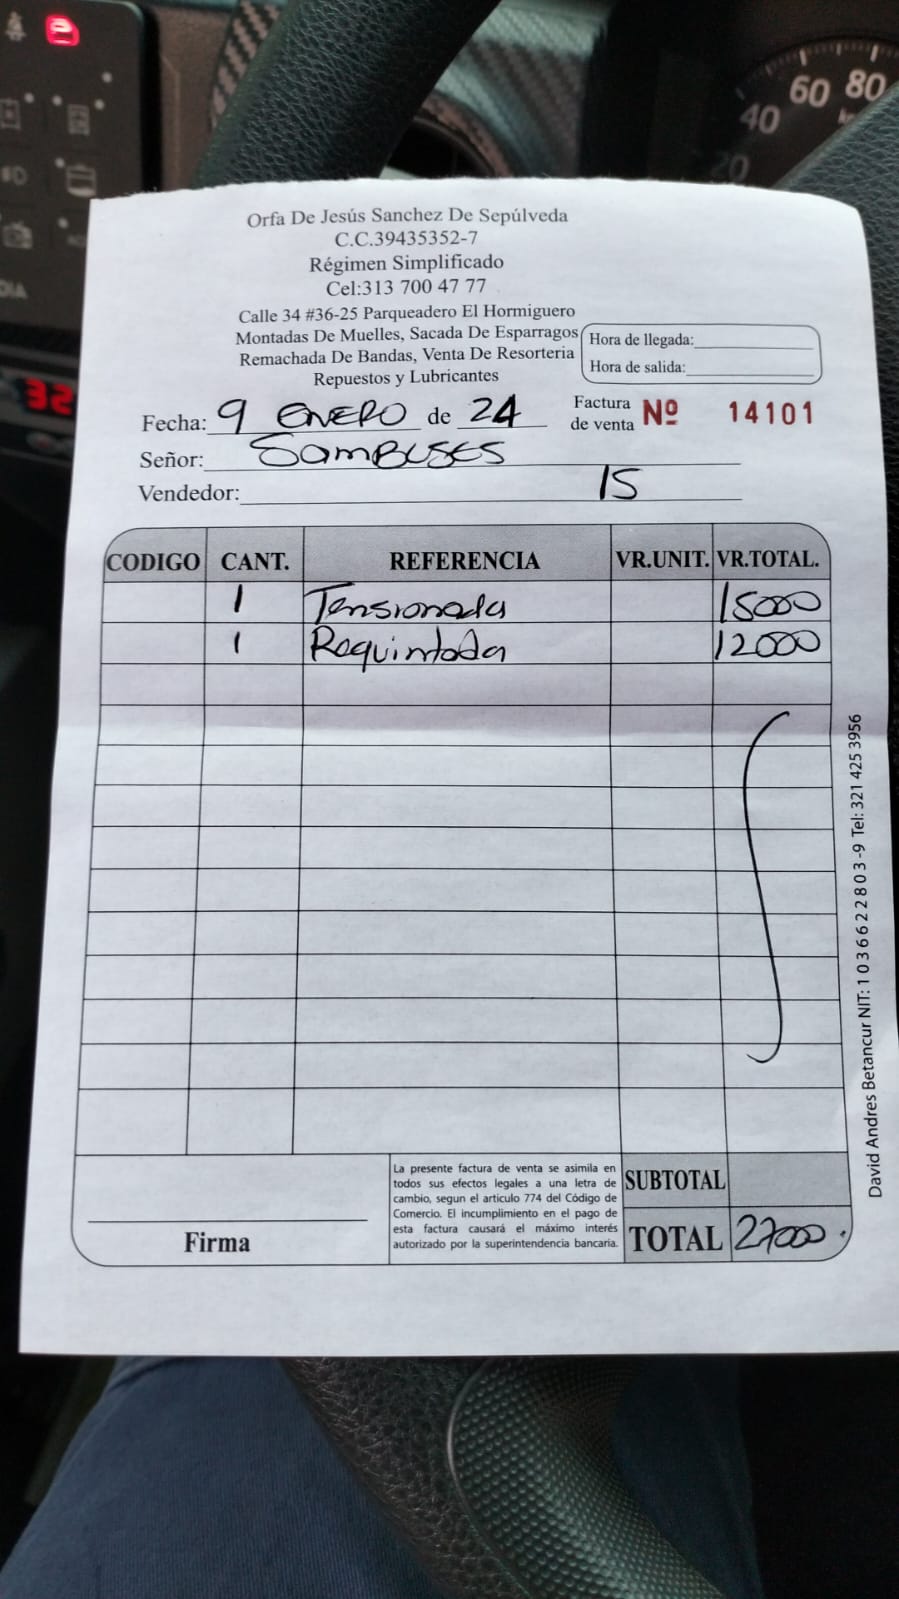 40 60 80
20
32
Orfa De Jesús Sanchez De Sepúlveda
C.C.39435352-7
Régimen Simplificado
Cel:313 700 47 77
Calle 34 #36-25 Parqueadero El Hormiguero
Montadas De Muelles, Sacada De Esparragos
Remachada De Bandas, Venta De Resorteria
Repuestos y Lubricantes
Hora de llegada:
Hora de salida:
Fecha: 9 ENERO de 24
Factura de venta Nº 14101
Señor: Sambuses
Vendedor: 15
CODIGO CANT. REFERENCIA VR.UNIT. VR.TOTAL.
1 Tensionada 15000
1 Requintada 12000
La presente factura de venta se asimila en
todos sus efectos legales a una letra de
cambio, segun el articulo 774 del Código de
Comercio. El incumplimiento en el pago de
esta factura causará el máximo interés
autorizado por la superintendencia bancaria.
SUBTOTAL
TOTAL 27000
Firma
David Andres Betancur NIT: 1036622803-9 Tel: 321 425 3956